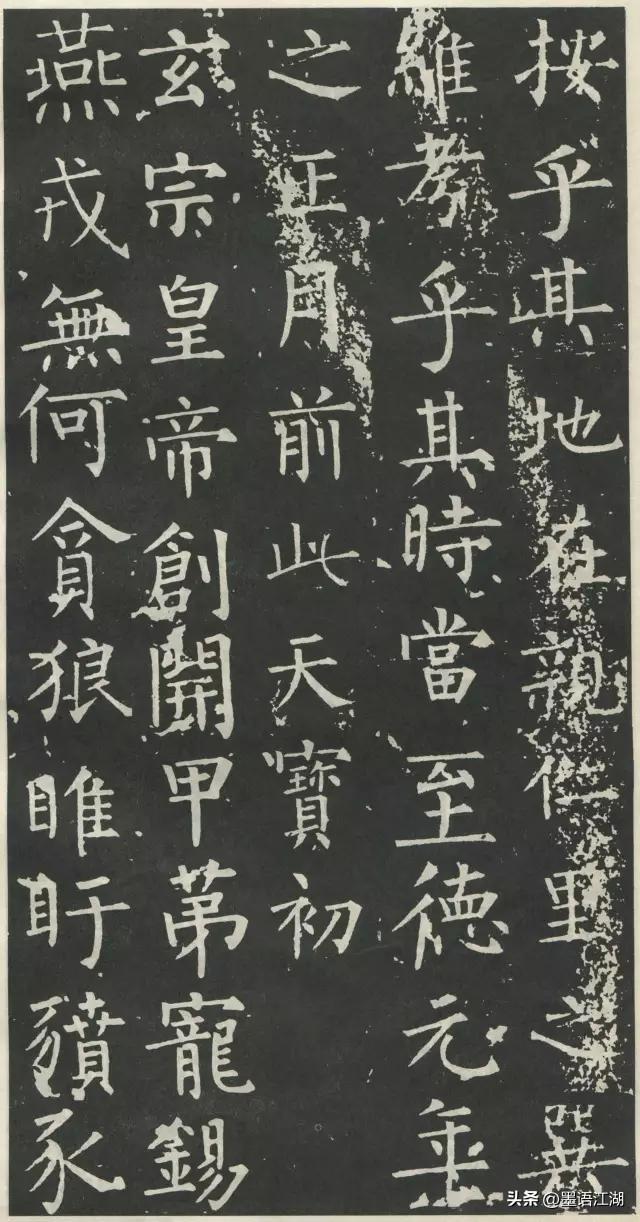 按乎其地在親仁里之巽
維考乎其時當至德元年
之正月前此天寶初
玄宗皇帝創開甲第寵錫
燕戎無何貪狼睢盱豶豕
头条 @墨语江湖